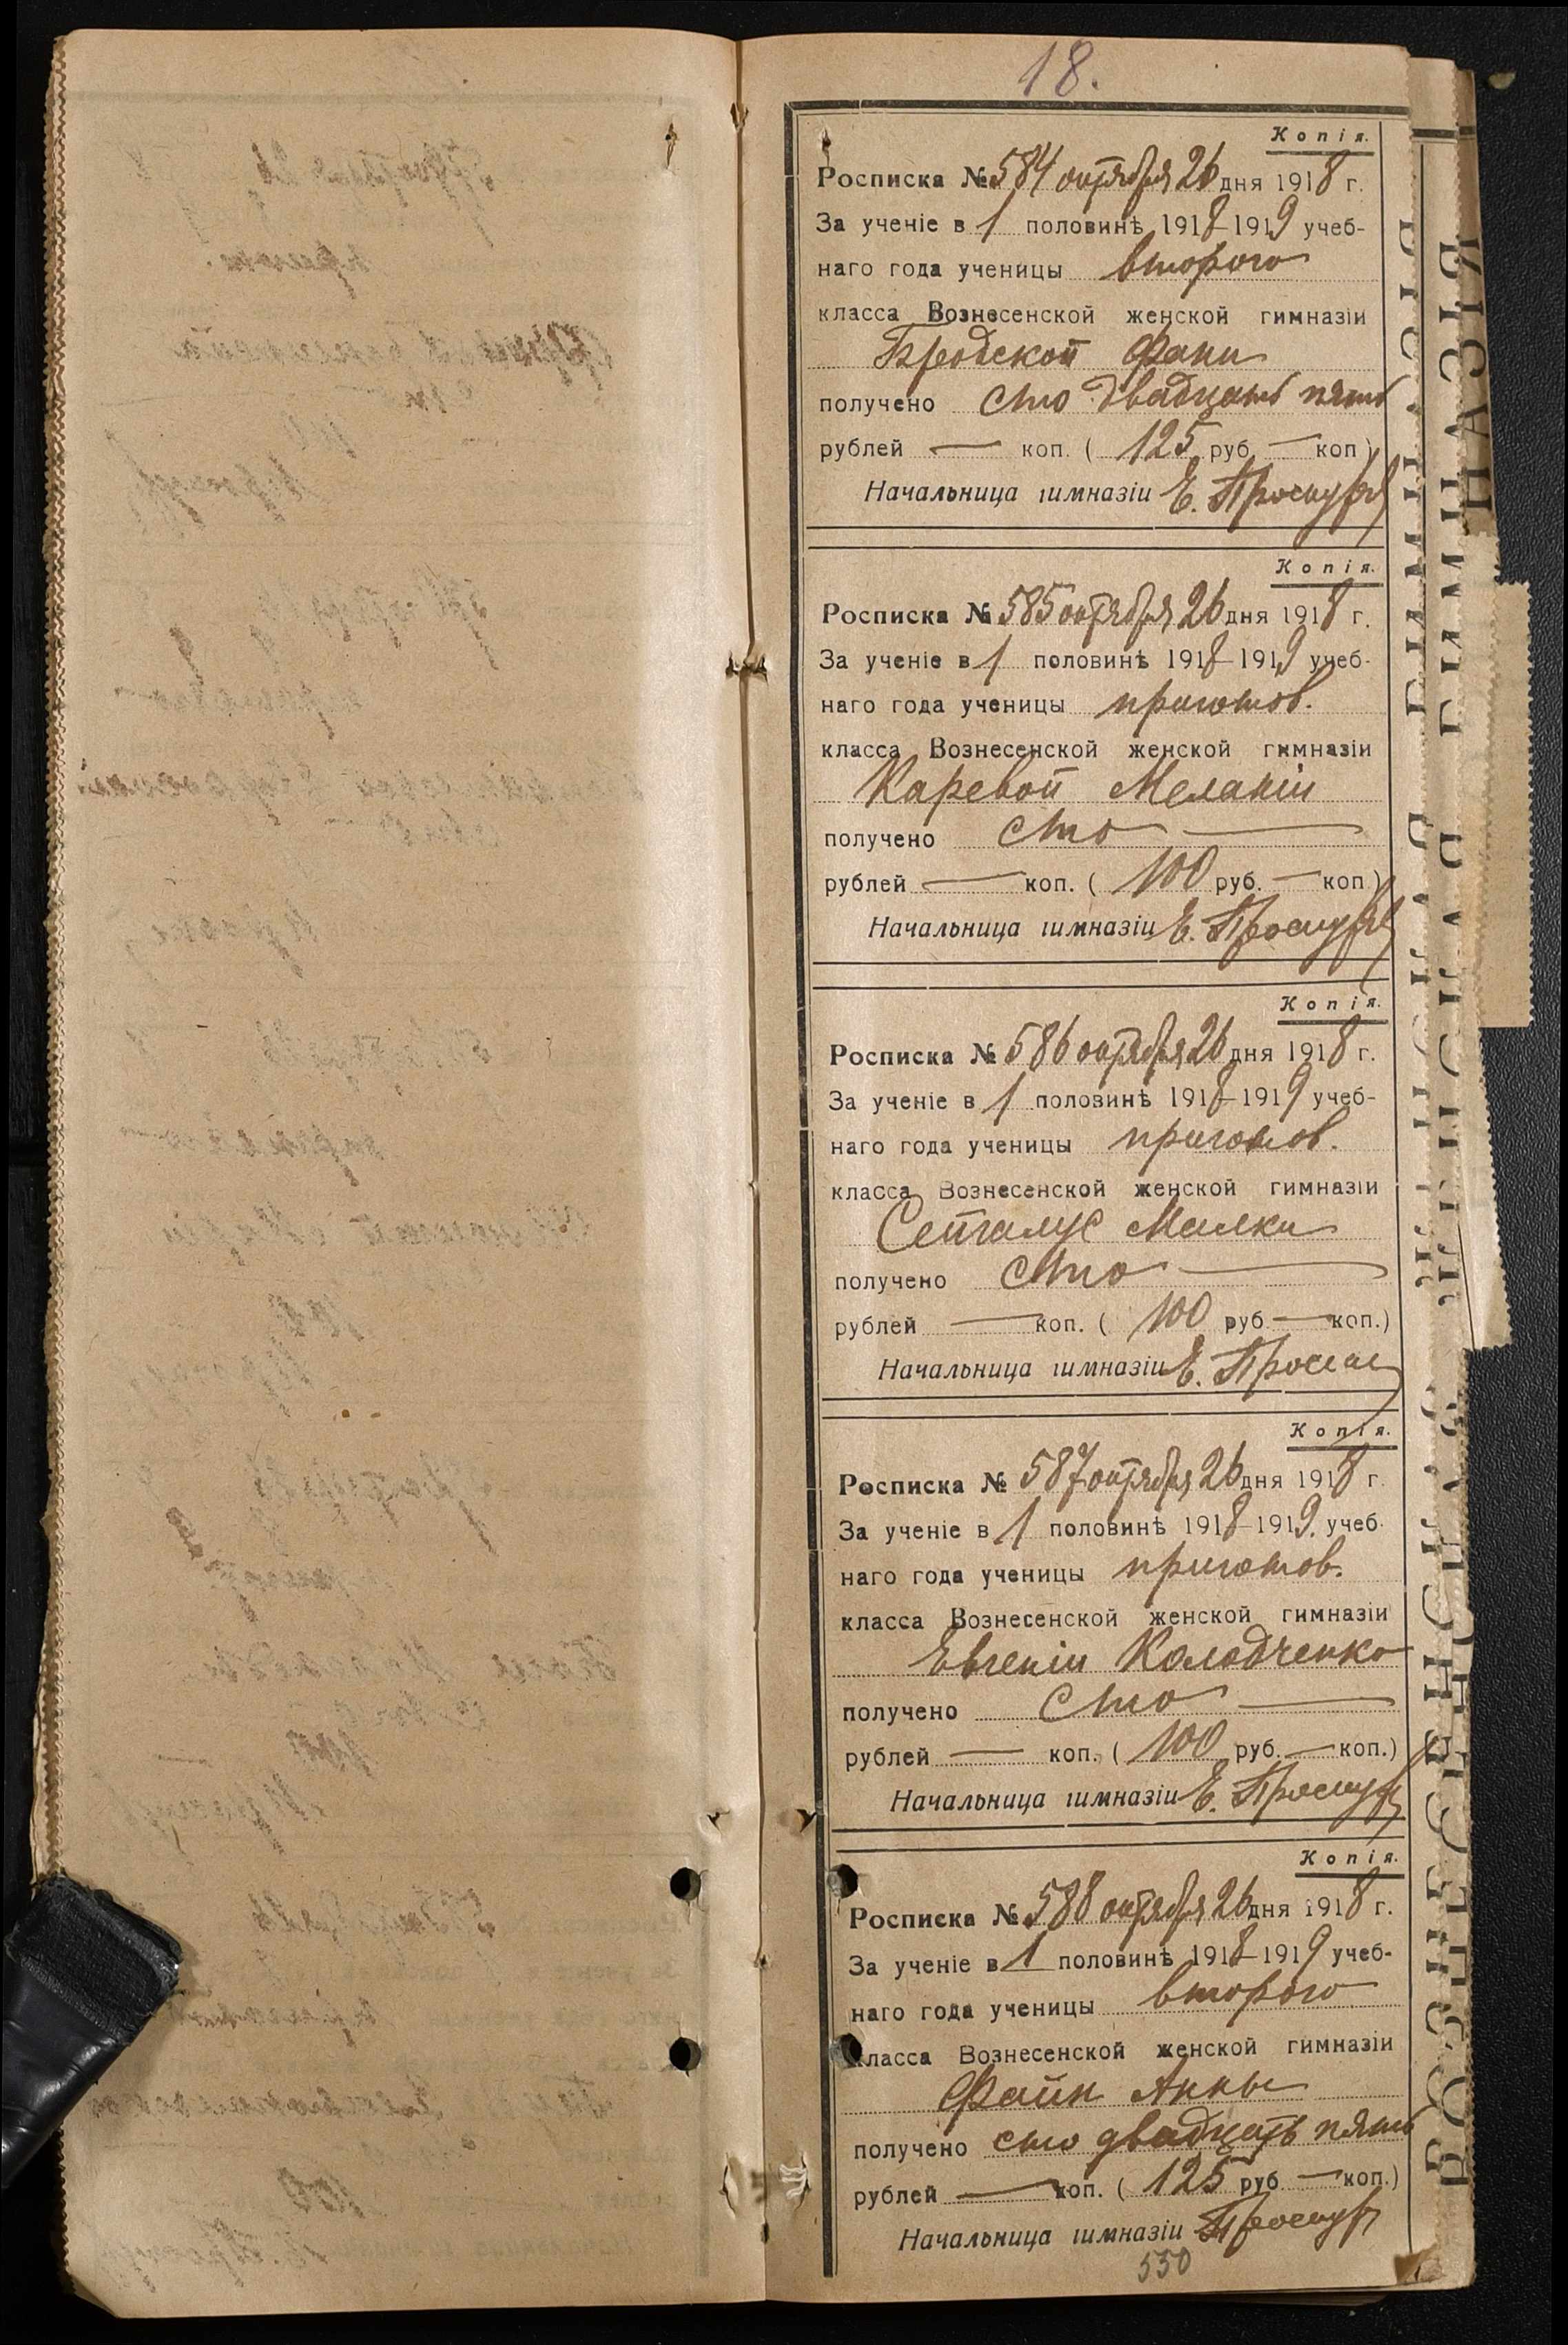 18.
Копія.
Росписка № 584 октября 26 дня 1918 г.
За ученіе в 1 половинѣ 1918-1919 учеб-
наго года ученицы второго
класса Вознесенской женской гимназіи
Бродской Фани
получено сто двадцать пять
рублей — коп. ( 125 руб — коп )
Начальница гимназіи Е.
Копія.
Росписка № 585 октября 26 дня 1918 г.
За ученіе в 1 половинѣ 1918-1919 учеб-
наго года ученицы приготов.
класса Вознесенской женской гимназіи
Каревой Меланіи
получено сто —
рублей — коп. ( 100 руб. — коп )
Начальница гимназіи Е.
Копія.
Росписка № 586 октября 26 дня 1918 г.
За ученіе в 1 половинѣ 1918-1919 учеб-
наго года ученицы приготов.
класса Вознесенской женской гимназіи
Малки
получено сто —
рублей — коп. ( 100 руб — коп.)
Начальница гимназіи Е.
Копія.
Росписка № 587 октября 26 дня 1918 г.
За ученіе в 1 половинѣ 1918-1919. учеб-
наго года ученицы приготов.
класса Вознесенской женской гимназіи
Евгеніи Колодченко
получено сто —
рублей — коп. ( 100 руб. — коп.)
Начальница гимназіи Е.
Копія.
Росписка № 588 октября 26 дня 1918 г.
За ученіе в 1 половинѣ 1918-1919 учеб-
наго года ученицы второго
класса Вознесенской женской гимназіи
Файн Анны
получено сто двадцать пять
рублей — коп. ( 125 руб — коп.)
Начальница гимназіи
550